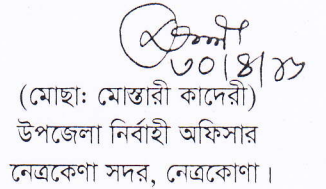 ৩০/৪/২৬
(মোছাঃ মোস্তারী কাদেরী)
উপজেলা নির্বাহী অফিসার
নেত্রকেণা সদর, নেত্রকোণা।